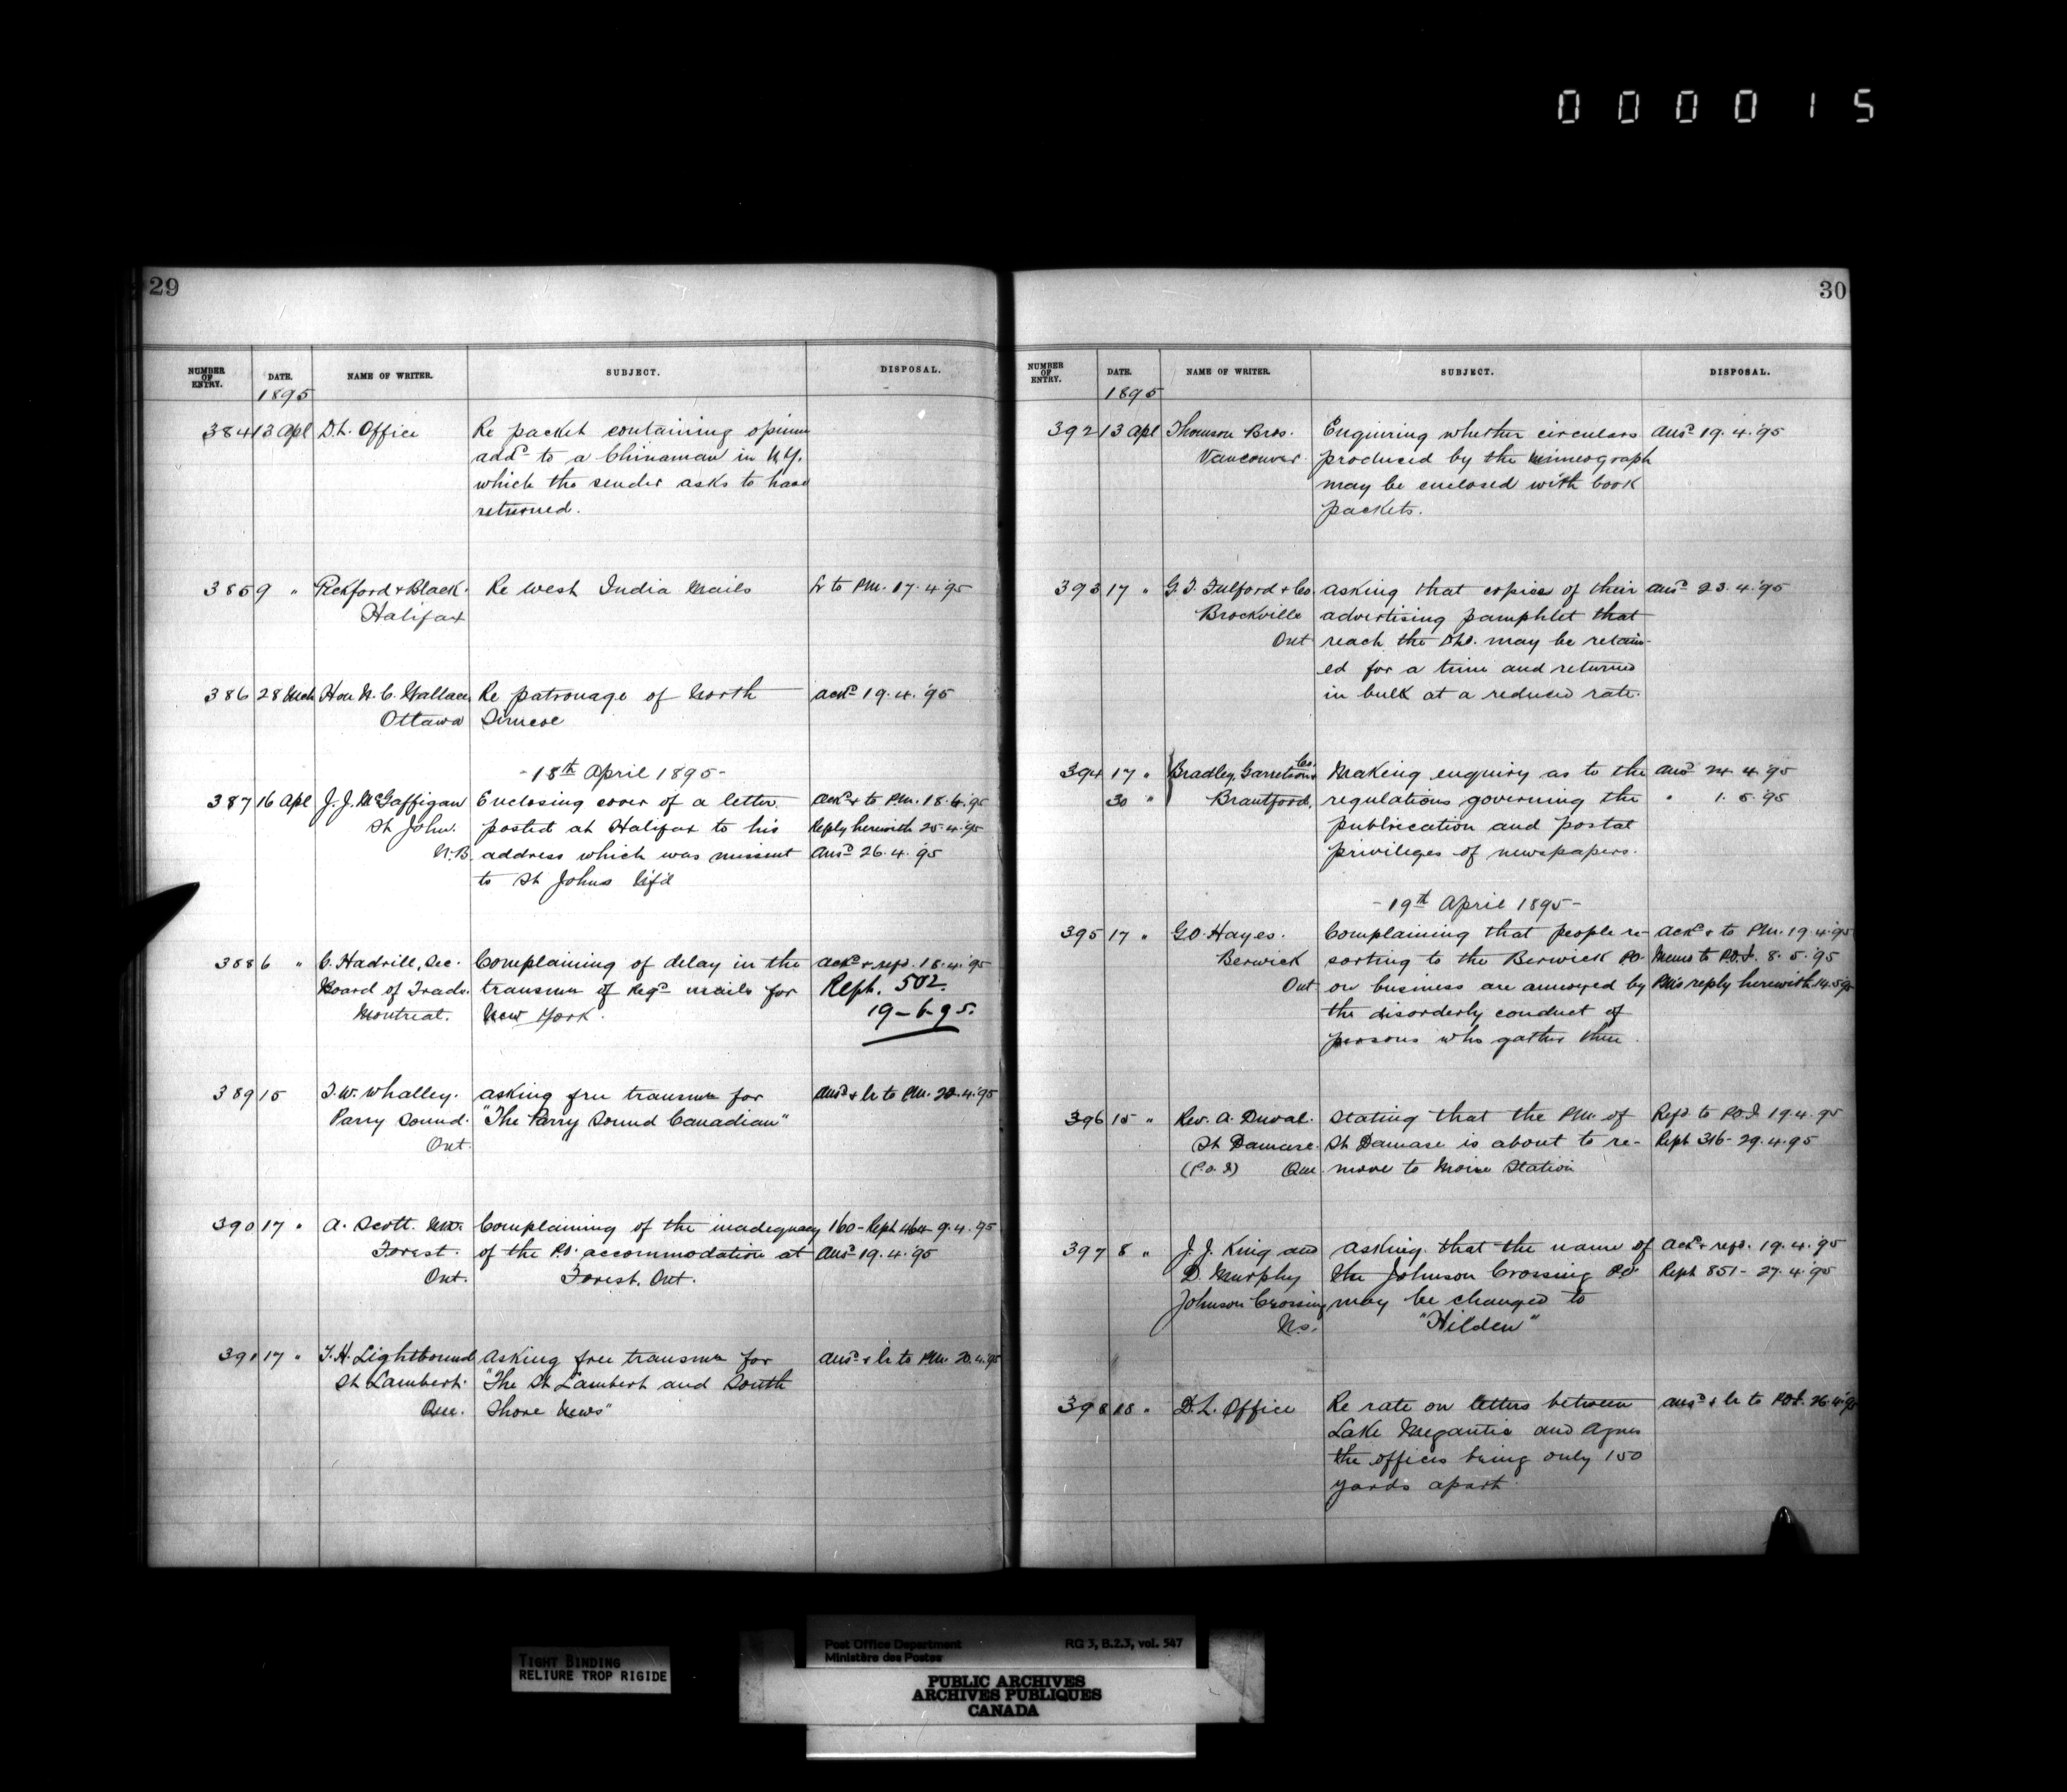 000015
29
NUMBER OF ENTRY. DATE. NAME OF WRITER. SUBJECT. DISPOSAL.
1895
384 13 Apl D.L. Office Re packet containing opium
addd to a Chinaman in N.Y.
which the sender asks to have
returned.
385 9 " Pickford & Black. Re West India Mails Lr to P.M. 17.4.'95
Halifax
386 28 Mch Hon N.C. Wallace Re patronage of North ackd 19.4.'95
Ottawa Simcoe
-18th April 1895-
387 16 Apl J.J. McGaffigan Enclosing cover of a letter ackd & to P.M. 18.4.'95
St John. posted at Halifax to his Reply herewith 25.4.'95
N.B. address which was missent Ansd 26.4.'95
to St Johns Nfd
388 6 " C. Hadrill, Sec. Complaining of delay in the ackd & refd. 18.4.'95
Board of Trade. transmn of Regd mails for Reph. 502.
Montreal. New York. 19-6-95.
389 15 T.W. Whalley. Asking free transmn for Ansd & lr to P.M. 20.4.'95
Parry Sound. "The Parry Sound Canadian"
Ont.
390 17 " A. Scott. Complaining of the inadequacy 160-Reph 464 9.4.'95
Forest. of the P.O. accommodation at Ansd 19.4.'95
Ont. Forest. Ont.
391 17 " T.H. Lightbound Asking free transmn for Ansd & lr to P.M. 20.4.'95
St Lambert. "The St Lambert and South
Que. Shore News"
30
NUMBER OF ENTRY. DATE. NAME OF WRITER. SUBJECT. DISPOSAL.
1895
392 13 Apl Thomson Bros. Enquiring whether circulars Ansd 19.4.'95
Vancouver. produced by the mimeograph
may be enclosed with book
packets.
393 17 " G.T. Fulford & Co Asking that copies of their Ansd 23.4.'95
Brockville advertising pamphlet that
Ont reach the D.L.O. may be retain-
ed for a time and returned
in bulk at a reduced rate.
394 17 " Bradley, Garretson Co. Making enquiry as to the Ansd 24.4.'95
30 " Brantford. regulations governing the " 1.5.'95
publication and postal
privileges of newspapers.
-19th April 1895-
395 17 " G.O. Hayes. Complaining that people re- Ackd & to P.M. 19.4.'95
Berwick sorting to the Berwick P.O. Memo to P.O.I. 8.5.'95
Ont on business are annoyed by PM's reply herewith 14.5.'95
the disorderly conduct of
persons who gather there.
396 15 " Rev. A. Duval. Stating that the P.M. of Refd to P.O.I. 19.4.'95
St Damase. St Damase is about to re- Reph 316-29.4.'95
(P.O.I) Que. move to Station
397 8 " J.J. King and Asking that the name of Ackd & refd. 19.4.'95
D. Murphy the Johnson Crossing P.O. Reph 851-27.4.'95
Johnson Crossing may be changed to
N.S. "Hilden"
398 18 " D.L. Office Re rate on letters between Ansd & lr to P.O.I. 26.4.'95
Lake Megantic and Agnes
the offices being only 150
yards apart.
TIGHT BINDING
RELIURE TROP RIGIDE
Post Office Department RG 3, B.2.3, vol. 547
Ministère des Postes
PUBLIC ARCHIVES
ARCHIVES PUBLIQUES
CANADA